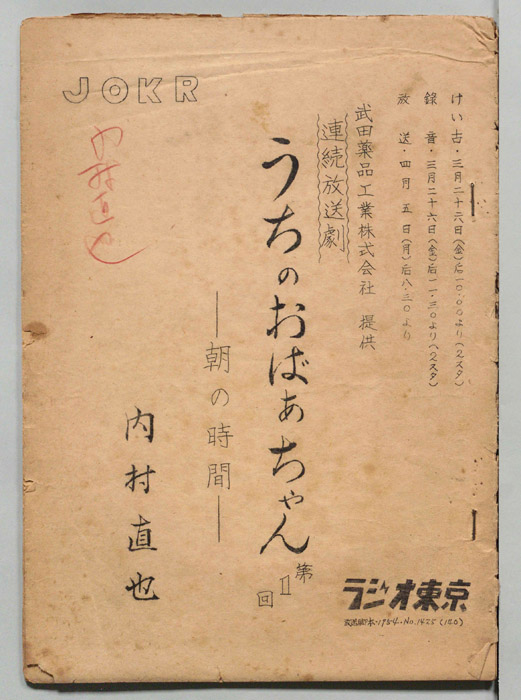 JOKR
けい古・三月二十六日(金)后一〇.〇〇より(2スタ)
録音・三月二十六日(金)后一一.三〇より(2スタ)
放送・四月五日(月)后八.三〇より
武田薬品工業株式会社 提供
連続放送劇
うちのおばあちゃん 第1回
―朝の時間―
内村直也
内村直也
ラジオ東京
放送台本・1954・No.1425(120)